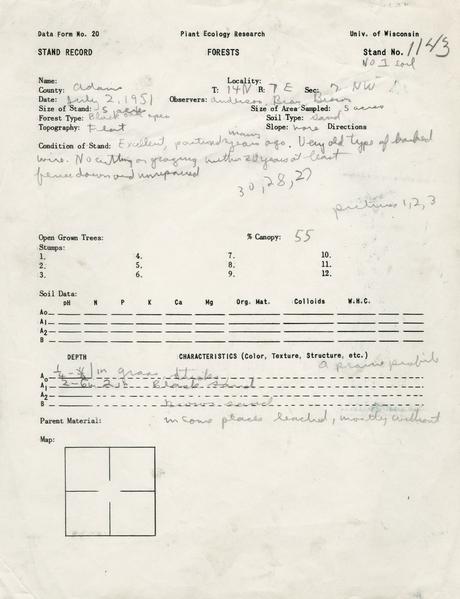 Data Form No. 20 Plant Ecology Research Univ. of Wisconsin
STAND RECORD FORESTS Stand No. 1143
No I soil
Name: Locality:
County: Adams T: 14N R: 7 E Sec: 2 NW
Date: July 2, 1951 Observers: Anderson, Bray, Brown
Size of Stand: 5 acres Size of Area Sampled: 5 acres
Forest Type: Black oak open Soil Type: Sand
Topography: Flat Slope: none Directions
many
Condition of Stand: Excellent, pastured years ago. Very old type of barbed
wire. No cutting or grazing within 20 years at least
fence down and unrepaired
30, 28, 27
pictures 1, 2, 3
Open Grown Trees: % Canopy: 55
Stumps:
1. 4. 7. 10.
2. 5. 8. 11.
3. 6. 9. 12.
Soil Data:
pH N P K Ca Mg Org. Mat. Colloids W.H.C.
A₀
A₁
A₂
B
DEPTH CHARACTERISTICS (Color, Texture, Structure, etc.)
a prairie profile
A₀ in grass
A₁ Black sand
A₂
B brown sand
Parent Material: in some places leached, mostly without
Map: